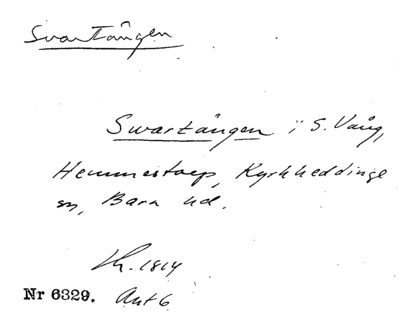 Svartången
Swartången i S. Vång,
Hemmestorp, Kyrkheddinge
sn, Bara hd.
Lh. 1814
Nr 6329. Ant 6